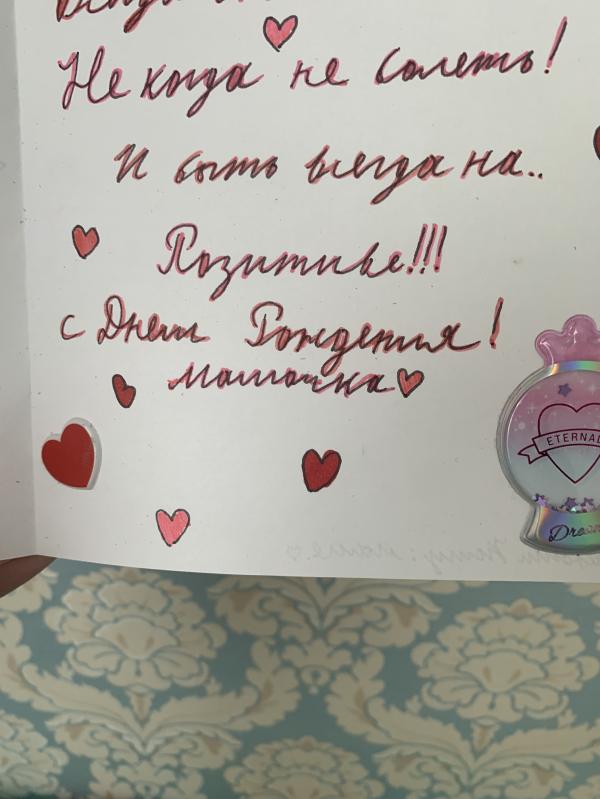 Не когда не болеть!
И быть всегда на..
Позитиве!!!
с Днем Рождения!
Мамочка
ETERNAL